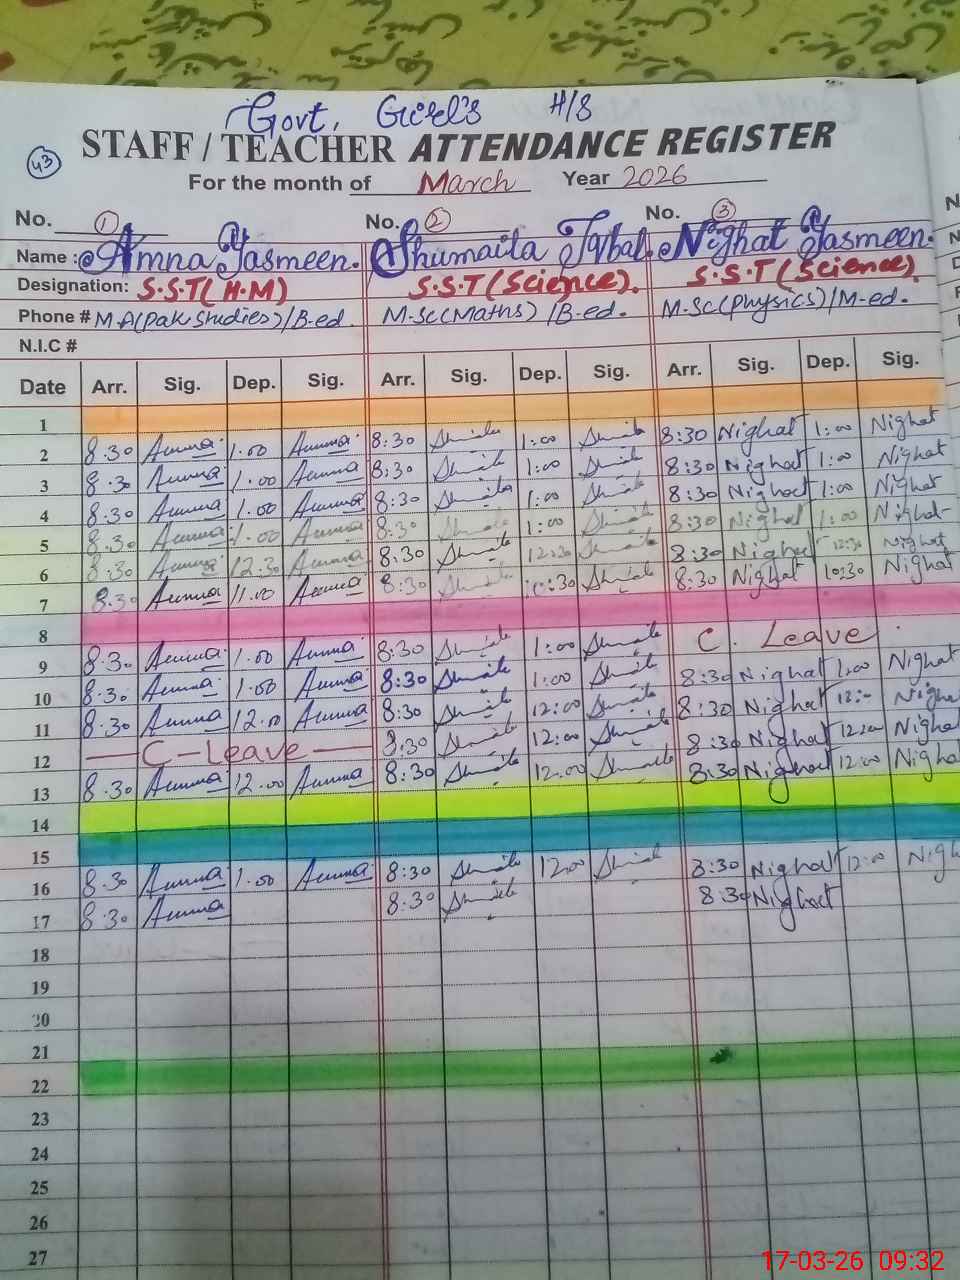 Govt. Girl's H/S
43
STAFF / TEACHER ATTENDANCE REGISTER
For the month of March Year 2026
No. 1 No. 2 No. 3
Name : Amna Yasmeen. Shumaila Iqbal. Nighat Yasmeen.
Designation: S.S.T(H.M) S.S.T(Science). S.S.T(Science)
Phone # M.A(Pak Studies)/B-ed. M.Sc(Maths) /B-ed. M.Sc(Physics)/M-ed.
N.I.C #
Date Arr. Sig. Dep. Sig. Arr. Sig. Dep. Sig. Arr. Sig. Dep. Sig.
1
2 8.30 Amna 1.00 Amna 8:30 Shumaila 1:00 Shumaila 8:30 Nighat 1:00 Nighat
3 8.30 Amna 1.00 Amna 8:30 Shumaila 1:00 Shumaila 8:30 Nighat 1:00 Nighat
4 8.30 Amna 1.00 Amna 8:30 Shumaila 1:00 Shumaila 8:30 Nighat 1:00 Nighat
5 8.30 Amna 1.00 Amna 8:30 Shumaila 1:00 Shumaila 8:30 Nighat 1:00 Nighat
6 8.30 Amna 12.30 Amna 8:30 Shumaila 12:30 Shumaila 8:30 Nighat 12:30 Nighat
7 8.30 Amna 11.00 Amna 8:30 Shumaila 10:30 Shumaila 8:30 Nighat 10:30 Nighat
8
9 8.30 Amna 1.00 Amna 8:30 Shumaila 1:00 Shumaila C. Leave
10 8.30 Amna 1.00 Amna 8:30 Shumaila 1:00 Shumaila 8:30 Nighat 1:00 Nighat
11 8.30 Amna 12.00 Amna 8:30 Shumaila 12:00 Shumaila 8:30 Nighat 12:00 Nighat
12 C-Leave 8:30 Shumaila 12:00 Shumaila 8:30 Nighat 12:00 Nighat
13 8.30 Amna 12.00 Amna 8:30 Shumaila 12:00 Shumaila 8:30 Nighat 12:00 Nighat
14
15
16 8.30 Amna 1.00 Amna 8:30 Shumaila 12:00 Shumaila 8:30 Nighat 12:00 Nigh
17 8.30 Amna 8:30 Shumaila 8:30 Nighat
18
19
20
21
22
23
24
25
26
27
17-03-26 09:32